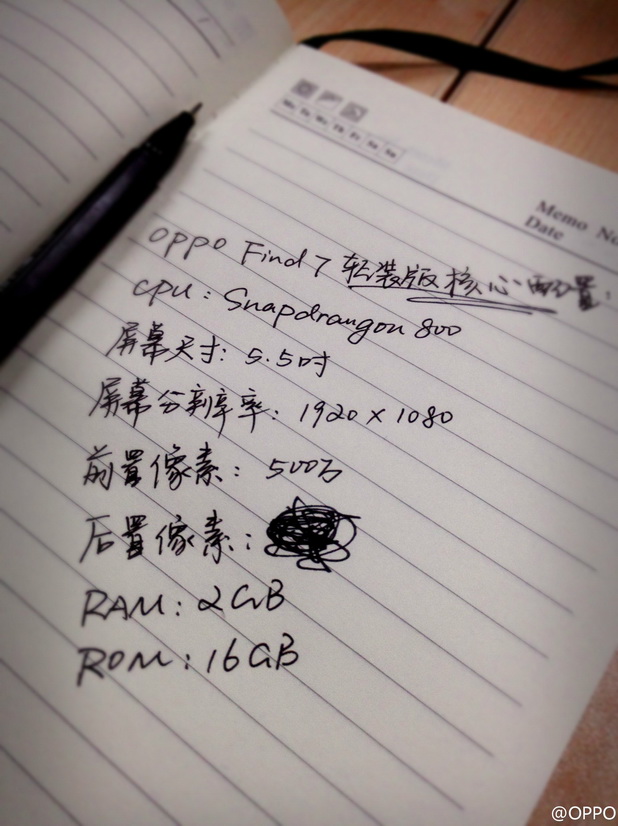 Mo. Tu. We. Th. Fr. Sa. Su.
Memo No
Date
OPPO Find 7 轻装版核心配置:
CPU: Snapdrangon 800
屏幕尺寸: 5.5吋
屏幕分辨率: 1920 x 1080
前置像素: 500万
后置像素:
RAM: 2GB
ROM: 16GB
@OPPO